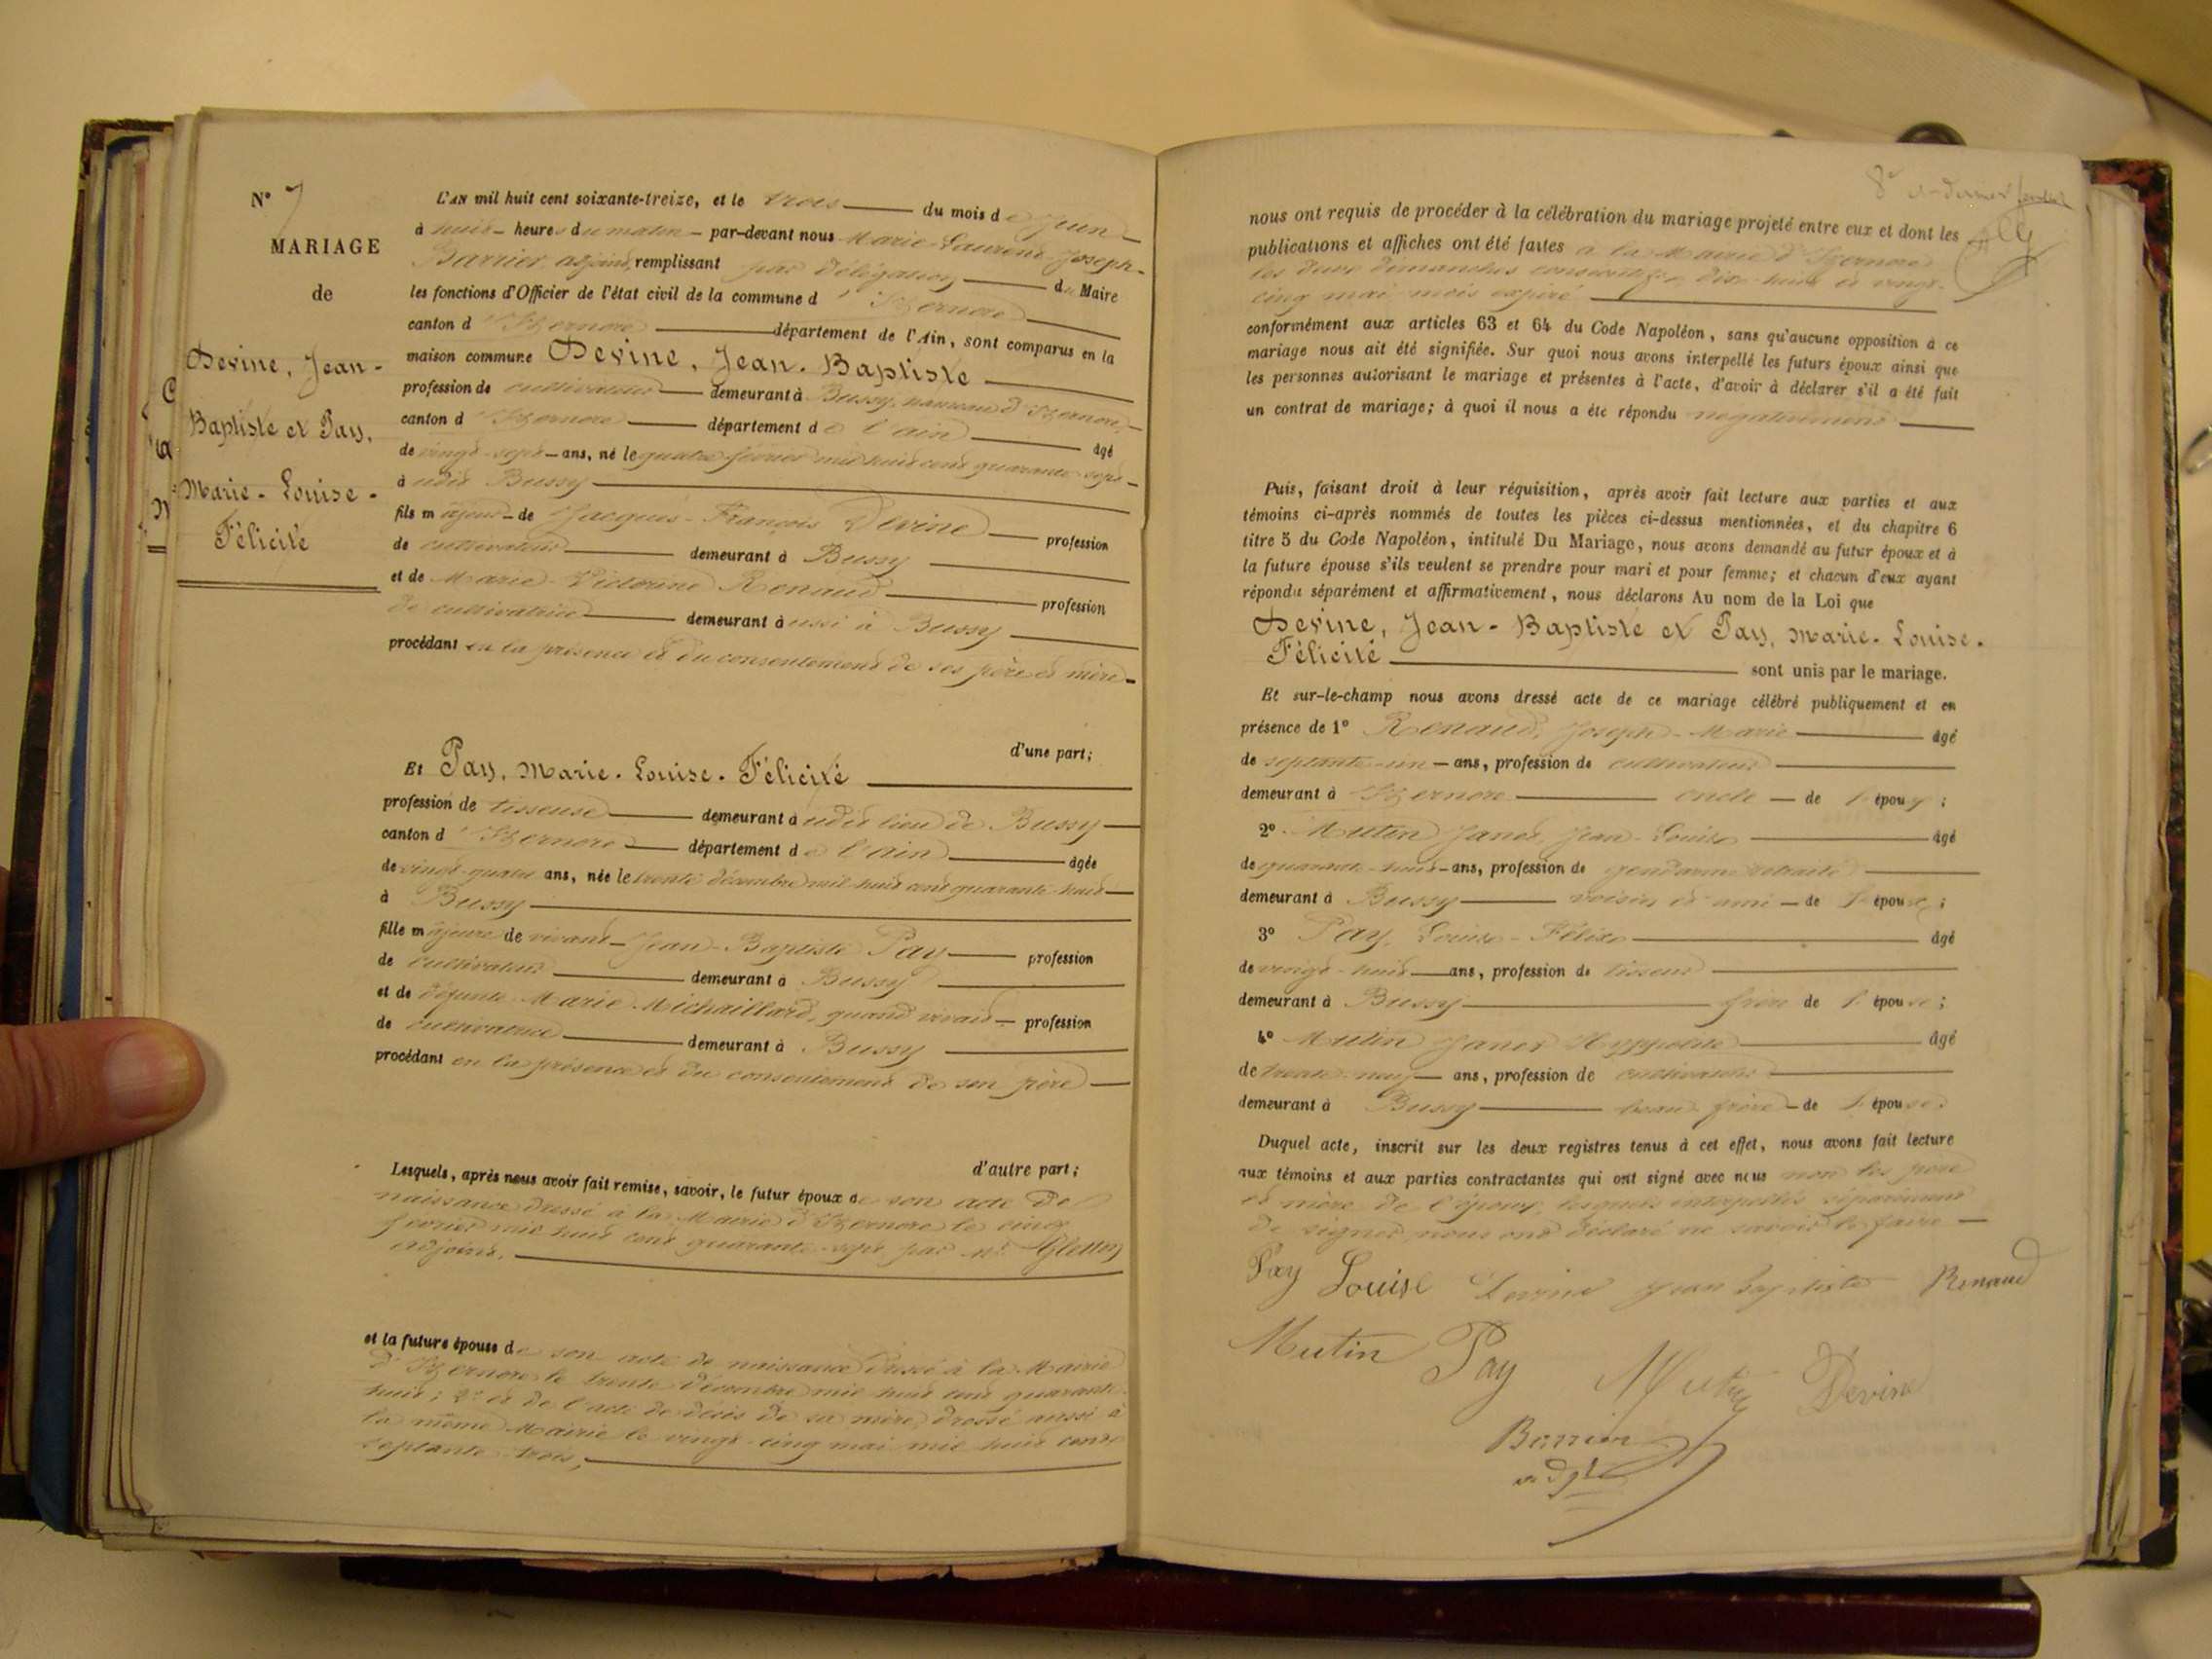 N° 7
MARIAGE
de
Devine, Jean-
Baptiste et Pay,
Marie-Louise-
Félicité
L'AN mil huit cent soixante-treize, et le trois du mois de Juin
à huit heures du matin par-devant nous Marie-Laurent-Joseph-
Barrier adjoint, remplissant par délégation du Maire
les fonctions d'Officier de l'état civil de la commune d'Izernore
canton d'Izernore département de l'Ain, sont comparus en la
maison commune Devine, Jean-Baptiste
profession de cultivateur demeurant à Bussy, hameau d'Izernore,
canton d'Izernore département de l'ain âgé
de vingt-sept ans, né le quatre février mil huit cent quarante-sept
à udit Bussy
fils majeur de Jacques-François Devine profession
de cultivateur demeurant à Bussy
et de Marie-Victorine Renaud profession
de cultivatrice demeurant aussi à Bussy
procédant en la présence et du consentement de ses père et mère
d'une part;
Et Pay, Marie-Louise-Félicité
profession de tisseuse demeurant audit lieu de Bussy
canton d'Izernore département de l'ain âgée
de vingt-quatre ans, née le trente décembre mil huit cent quarante-huit
à Bussy
fille majeure de vivant Jean-Baptiste Pay profession
de cultivateur demeurant à Bussy
et de défunte Marie Michaillard, quand vivait profession
de cultivatrice demeurant à Bussy
procédant en la présence et du consentement de son père
d'autre part;
Lesquels, après nous avoir fait remise, savoir, le futur époux de son acte de
naissance dressé à la Mairie d'Izernore le cinq
février mil huit cent quarante-sept par Mr
adjoint.
et la future épouse de son acte de naissance dressé à la Mairie
d'Izernore le trente décembre mil huit cent quarante-
huit; 2° et de l'acte de décès de sa mère, dressé aussi à
la même Mairie le vingt-cinq mai mil huit cent
septante-trois,
8e et dernier feuillet
nous ont requis de procéder à la célébration du mariage projeté entre eux et dont les
publications et affiches ont été faites à la Mairie d'Izernore
les deux dimanches consécutifs dix-huit et vingt-
cinq mai mois expiré
conformément aux articles 63 et 64 du Code Napoléon, sans qu'aucune opposition à ce
mariage nous ait été signifiée. Sur quoi nous avons interpellé les futurs époux ainsi que
les personnes autorisant le mariage et présentes à l'acte, d'avoir à déclarer s'il a été fait
un contrat de mariage; à quoi il nous a été répondu négativement
Puis, faisant droit à leur réquisition, après avoir fait lecture aux parties et aux
témoins ci-après nommés de toutes les pièces ci-dessus mentionnées, et du chapitre 6
titre 5 du Code Napoléon, intitulé Du Mariage, nous avons demandé au futur époux et à
la future épouse s'ils veulent se prendre pour mari et pour femme; et chacun d'eux ayant
répondu séparément et affirmativement, nous déclarons Au nom de la Loi que
Devine, Jean-Baptiste et Pay, Marie-Louise-
Félicité sont unis par le mariage.
Et sur-le-champ nous avons dressé acte de ce mariage célébré publiquement et en
présence de 1° Renaud, Joseph-Marie âgé
de septante-un ans, profession de cultivateur
demeurant à Izernore oncle de l'époux;
2° Mutin Janet, Jean-Louis âgé
de quarante-huit ans, profession de gendarme retraité
demeurant à Bussy voisin et ami de l'époux;
3° Pay, Louis-Félix âgé
de vingt-huit ans, profession de tisseur
demeurant à Bussy frère de l'épouse;
4° Mutin Janet Hyppolite âgé
de trente-neuf ans, profession de cultivateur
demeurant à Bussy beau-frère de l'épouse.
Duquel acte, inscrit sur les deux registres tenus à cet effet, nous avons fait lecture
aux témoins et aux parties contractantes qui ont signé avec nous non les père
et mère de l'époux, lesquels interpellés séparément
de signer, nous ont déclaré ne savoir le faire
Pay Louise Devine jean baptiste Renaud
Mutin Pay Mutin Devine
Barrier
adjt